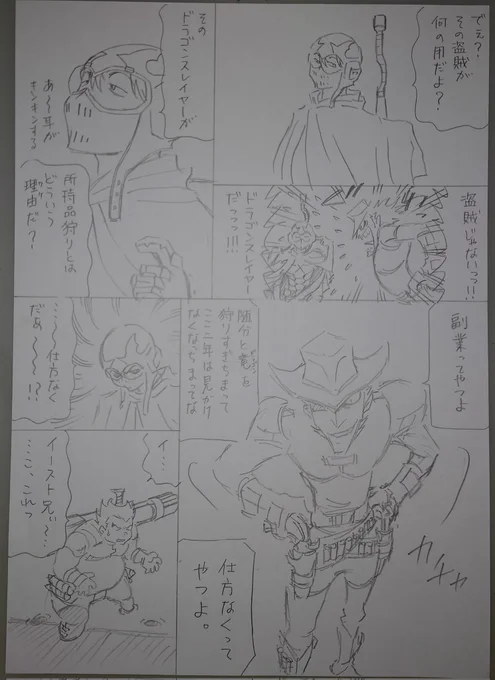 でぇ?
その盗賊が
何の用だよ?
盗賊じゃないっっ!!
ドラゴンスレイヤー
だっっっ!!!
その
ドラゴンスレイヤーが
あ〜耳が
キンキンする
所持品狩りとは
どういう
理由だ?
副業ってやつよ
随分と竜を
狩りすぎちまって
ここ二年は見かけ
なくなっちまってな
カチャ
仕方なくって
やつよ。
……仕方なく
だぁ〜〜!?
イ…
イースト兄ぃ〜…
…こ、これっ